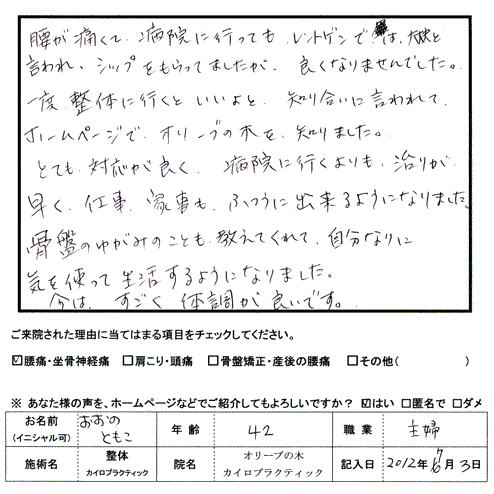 腰が痛くて、病院に行っても、レントゲンでは、大丈夫と
言われ、シップをもらってましたが、良くなりませんでした。
一度、整体に行くといいよと、知り合いに言われて、
ホームページで、オリーブの木を、知りました。
とても、対応が良く、病院に行くよりも、治りが、
早く、仕事、家事も、ふつうに出来るようになりました。
骨盤のゆがみのことも、教えてくれて、自分なりに
気を使って生活するようになりました。
今は、すごく体調が良いです。
ご来院された理由に当てはまる項目をチェックしてください。
☑腰痛・坐骨神経痛 □肩こり・頭痛 □骨盤矯正・産後の腰痛 □その他( )
※ あなた様の声を、ホームページなどでご紹介してもよろしいですか？ ☑はい □匿名で □ダメ
お名前 (イニシャル可) おおの ともこ 年齢 42 職業 主婦
施術名 整体 カイロプラクティック 院名 オリーブの木 カイロプラクティック 記入日 2012年7月3日